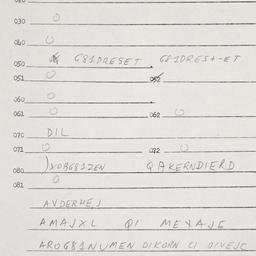 030 O
040 O
050 G81DRESET. G81DRES+-ET
051 O 052
060 O
061 O 062 O
070 DIL
071 O 072 O
080 QAKERNDIERD
081 O
AVDERHEJ
AMAJXL QI MEXAJE
AROG81NUMEN DIKORN CI OIVEJE